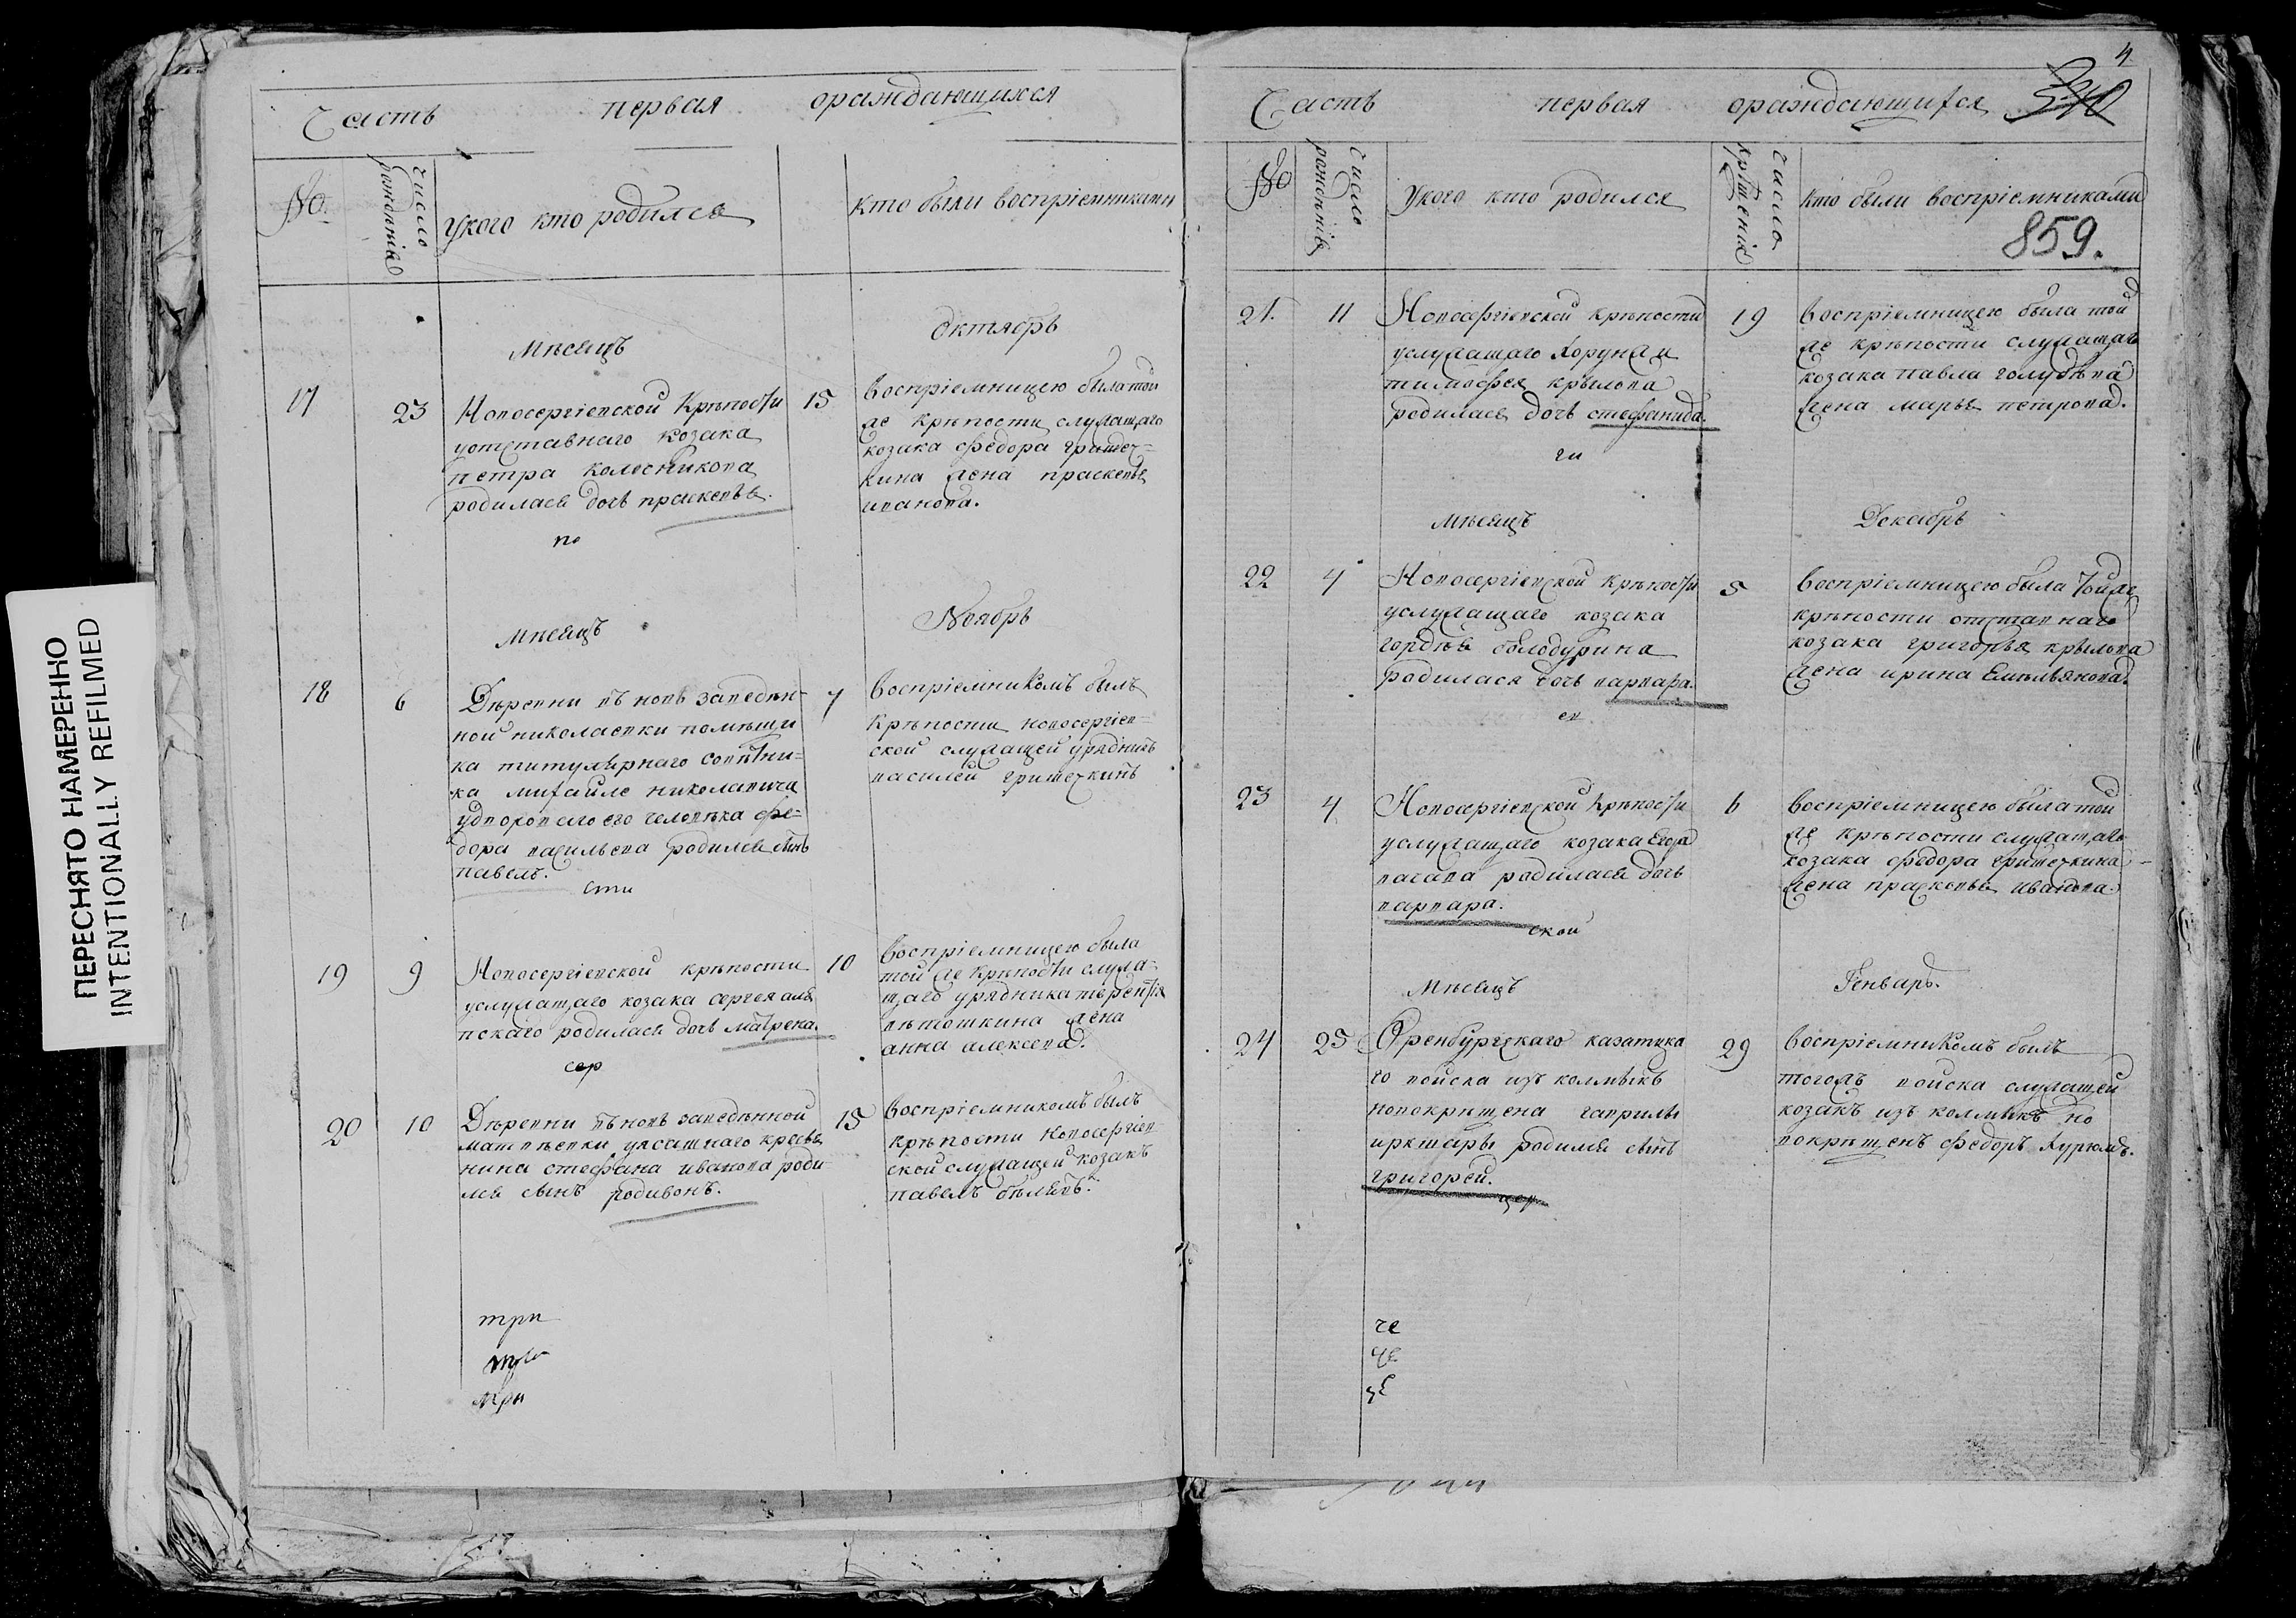 ПЕРЕСНЯТО НАМЕРЕННО
INTENTIONALLY REFILMED
Часть первая ораждающихся
№.
число рожденія
Укого кто родился
Кто были воспріемниками
Мѣсяцъ Октябрь
17 23
Новосергіевской Крѣпости
уотставнаго козака
петра колесникова
родилась дочь прасковья.
во
15
Воспріемницею была той
же крѣпости служащаго
козака федора гришеч=
кина жена прасковья
иванова.
Мѣсяцъ Ноябрь
18 6
Дѣревни въ новь заведѣн-
ной николаевки помѣщи
ка титулярнаго совѣтни=
ка михайле николаевича
удворовагоего человѣка фе=
дора васильева родился сынъ
павелъ.
сти
7
Воспріемникомъ былъ
Крѣпости новосергіев=
ской служащей урядникъ
василей гришечкинъ
19 9
Новосергіевской крѣпости
услужащаго козака сергея
родилась дочь матрена.
сер
10
Воспріемницею была
той же Крѣпости служа-
щаго урядника терентія
вѣтошкина жена
анна алексева.
20 10
Дѣревни въновь заведѣнной
матвѣевки уясашнаго кресья
нина стефана иванова роди
лся сынъ родивонъ.
15
Воспріемникомъ былъ
крѣпости Новосергіев
ской служащей козакъ
павелъ бѣляевъ.
три
три
три
4
Часть первая ораждающихся
№
Число рожденія
Укого кто родился
Число крѣщенія
Кто были воспріемниками
859.
21. 11
Новосергіевской крѣпости
услужащаго Хорунжи
тимофея крылова
родилась дочь стефанида.
ги
19
Воспріемницею была той
же крѣпости служащаго
козака павла голубева
жена марья петрова.
Мѣсяцъ Декабрь
22 4
Новосергіевской крѣпости
услужащаго козака
гордѣя болодурина
родилась дочь варвара.
ев
5
Воспріемницею была тойже
крѣпости отставнаго
козака григорья крылова
жена ирина Емельянова.
23 4
Новосергіевской крѣпости
услужащаго козака Егора
родилась дочь
варвара.
ской
6
Воспріемницею была той
же крѣпости служащаго
козака федора гришечкина
жена прасковья иванова.
Мѣсяцъ Генварь.
24 25
Оренбургскаго казатцка
го войска изъ колмыкъ
новокрищена гаврилы
родился сынъ
григорей.
цер
29
Воспріемникомъ былъ
тогожъ войска служащей
козакъ изъ колмыкъ но
вокрѣщенъ федоръ
че
че
че